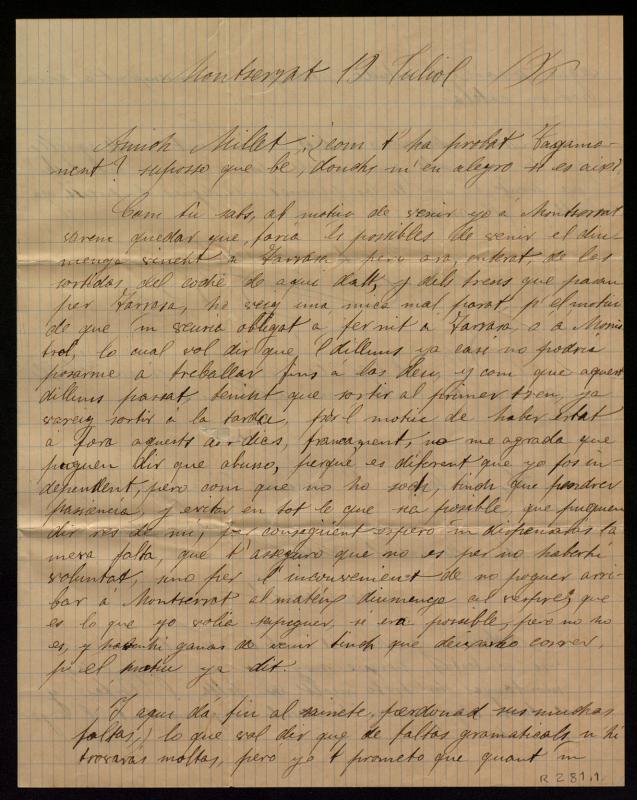 Montserrat 19 Juliol 96
Amich Millet ¿com t' ha probat Tagama-
nent? suposso que be, donchs m' en alegro si es aixi.
Com tu sabs, al motiu de venir yo á Montserrat
varem quedar que faria 'ls possibles de venir el diu-
menge vinent a Tarrasa pero ara, enterat, de las
sortidas, del coche de aqui dalt, y dels trens que pasan
per Tarrasa, ho veig una mica mal parat p' el motiu
de que 'm veuria obligat a fer nit a Tarrasa o á Monis
trol, lo cual vol dir que l dilluns ya casi no podria
posarme a treballar fins a las deu, y com que aquest
dilluns passat, tenint que sortir al primer tren, ja
vareig sortir á la tarde, per l motiu de haber estat
a fora aquests dias, francament, no me agrada que
puguen dir que abuso, perque es diferent que yo fos in-
dependent, pero com que no ho soch, tinch que pendrer
pasciencia, y evitar en tot lo que sia posible, que puguen
dir res de mi; per conseguent espero 'm dispensarás la
meva falta, que t' asseguro que no es per no haberhi
voluntat, sino per l' inconvenient de no poguer arri-
bar á Montserrat al mateix diumenge al vespre, que
es lo que yo volia sapiguer, si era possible, pero no ho
es, y habenthi ganas de venir tinch que deixarho correr,
p' el motiu ya dit.
Y aqui dá fin al sainete, perdonad sus muchas
faltas, lo que vol dir que de faltas gramaticals n' hi
trovarás moltas, pero yo t prometo que quant 'm
R 281.1.